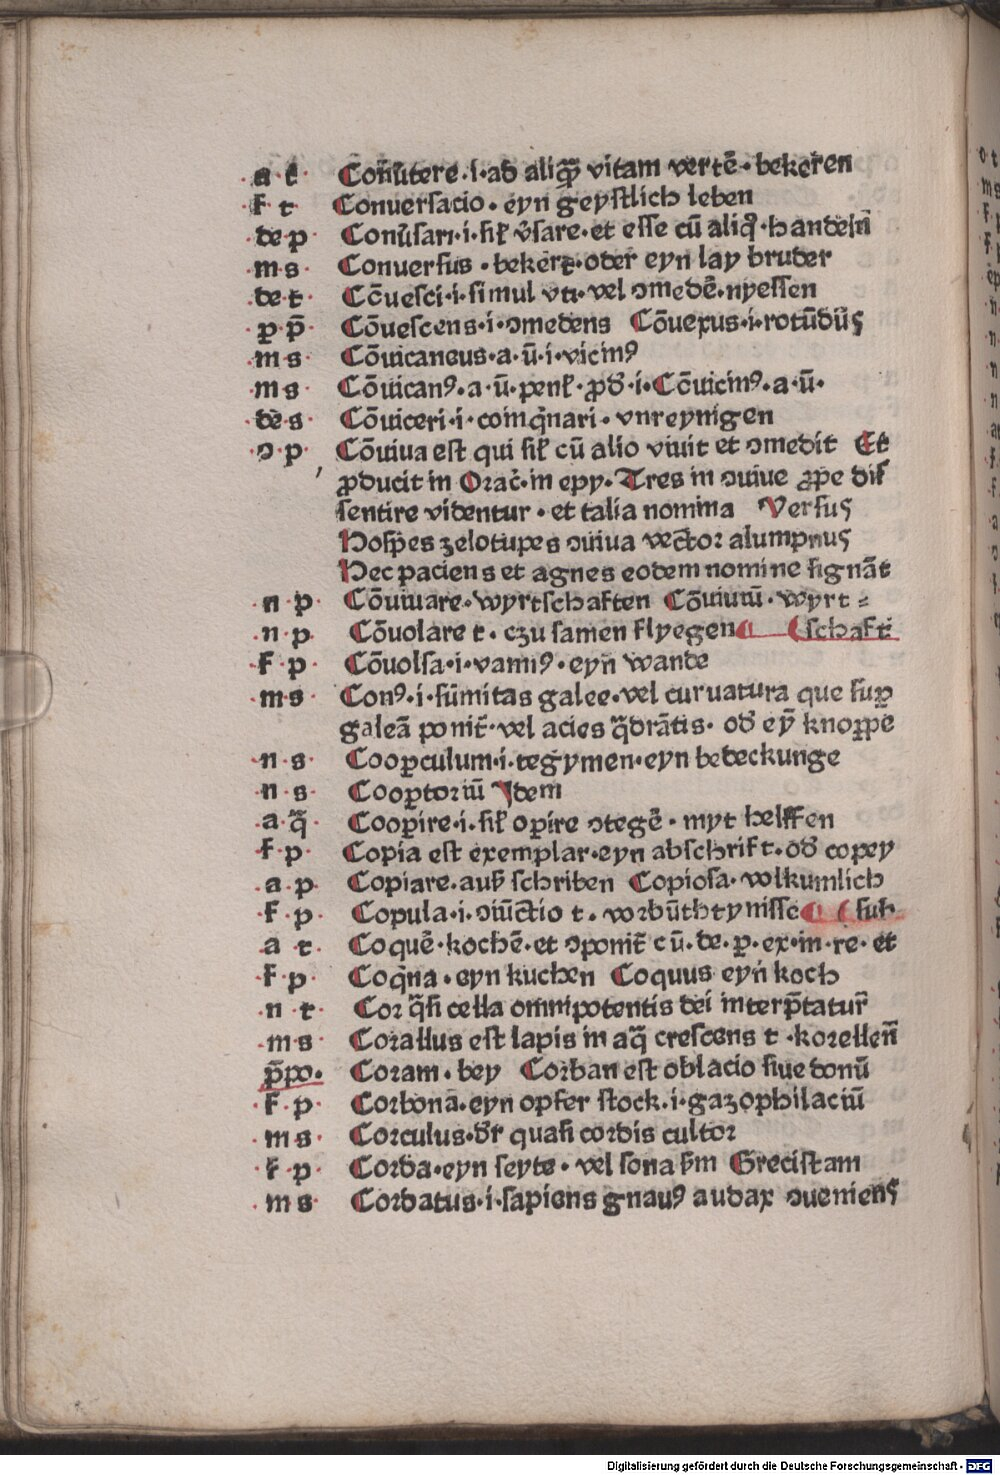 a t Conũtere.i.ad aliqȝ vitam vertẽ.bekeren
f t Conuersacio. eyn geystlich leben
de p Conũsari.i.sil' v̄sare.et esse cũ aliq̊.handeln̄
m s Conuersus.bekert.oder eyn lay bruder
de t Cõuesci.i.simul vti.vel ꝯmedẽ.nyessen
p p̄ Cõuescens.i.ꝯmedens Cõuexus.i.rotũdus
m s Cõuicaneus.a.ũ.i.vicinꝰ
m s Cõuicanꝰ.a.ũ.penl'.ꝓd'.i.Cõuicinꝰ.a.ũ.
de s Cõuiceri.i.coinq̇nari.vnreynigen
ꝯ p. Cõuiua est qui sil' cũ alio viuit et ꝯmedit Et
ꝓducit in Orac̄.in epy.Tres in ꝯuiue ꝓpe dis
sentire videntur.et talia nomina Versus
Hosp̄es zelotupes ꝯuiua vector alumpnus
Hec paciens et agnes eodem nomine signãt
n p Cõuiuare.wyrtschaften Cõuiuiũ.wyrt=
n p Cõuolare t. czu samen flyegen schaft
f p Cõuolsa.i.vannꝰ.eyn wande
m s Conꝰ.i.sũmitas galee.vel curuatura que suꝑ
galeã ponit̄.vel acies q̃drãtis. od' eȳ knorpe
n s Cooꝑculum.i.tegymen.eyn bedeckunge
n s Cooꝑtoriũ Idem
a q̃ Cooꝑire.i.sil' oꝑire ꝯtegẽ.myt helffen
f p Copia est exemplar.eyn abschrift.od' copey
a p Copiare.auß schriben Copiosa.volkumlich
f p Copula.i.ꝯiũctio t. vorbũthtynisse sub
a t Coquẽ.kochẽ.et ꝯponit̄ cũ.de.ꝑ.ex.in.re.et
f p Coq̇na.eyn kuchen Coquus eyn koch
n t Cor q̃si cella omnipotentis dei interp̄tatur
m s Corallus est lapis in aq̃ crescens t.korellen̄
p̄po. Coram.bey Corban est oblacio siue donũ
f p Corbonã.eyn opfer stock.i.gazophilaciũ
m s Corculus.dr̄ quasi cordis cultor
f p Corda.eyn seyte.vel sona sm̄ Grecistam
m s Cordatus.i.sapiens gnauꝰ audax ꝯueniens
Digitalisierung gefördert durch die Deutsche Forschungsgemeinschaft - DFG